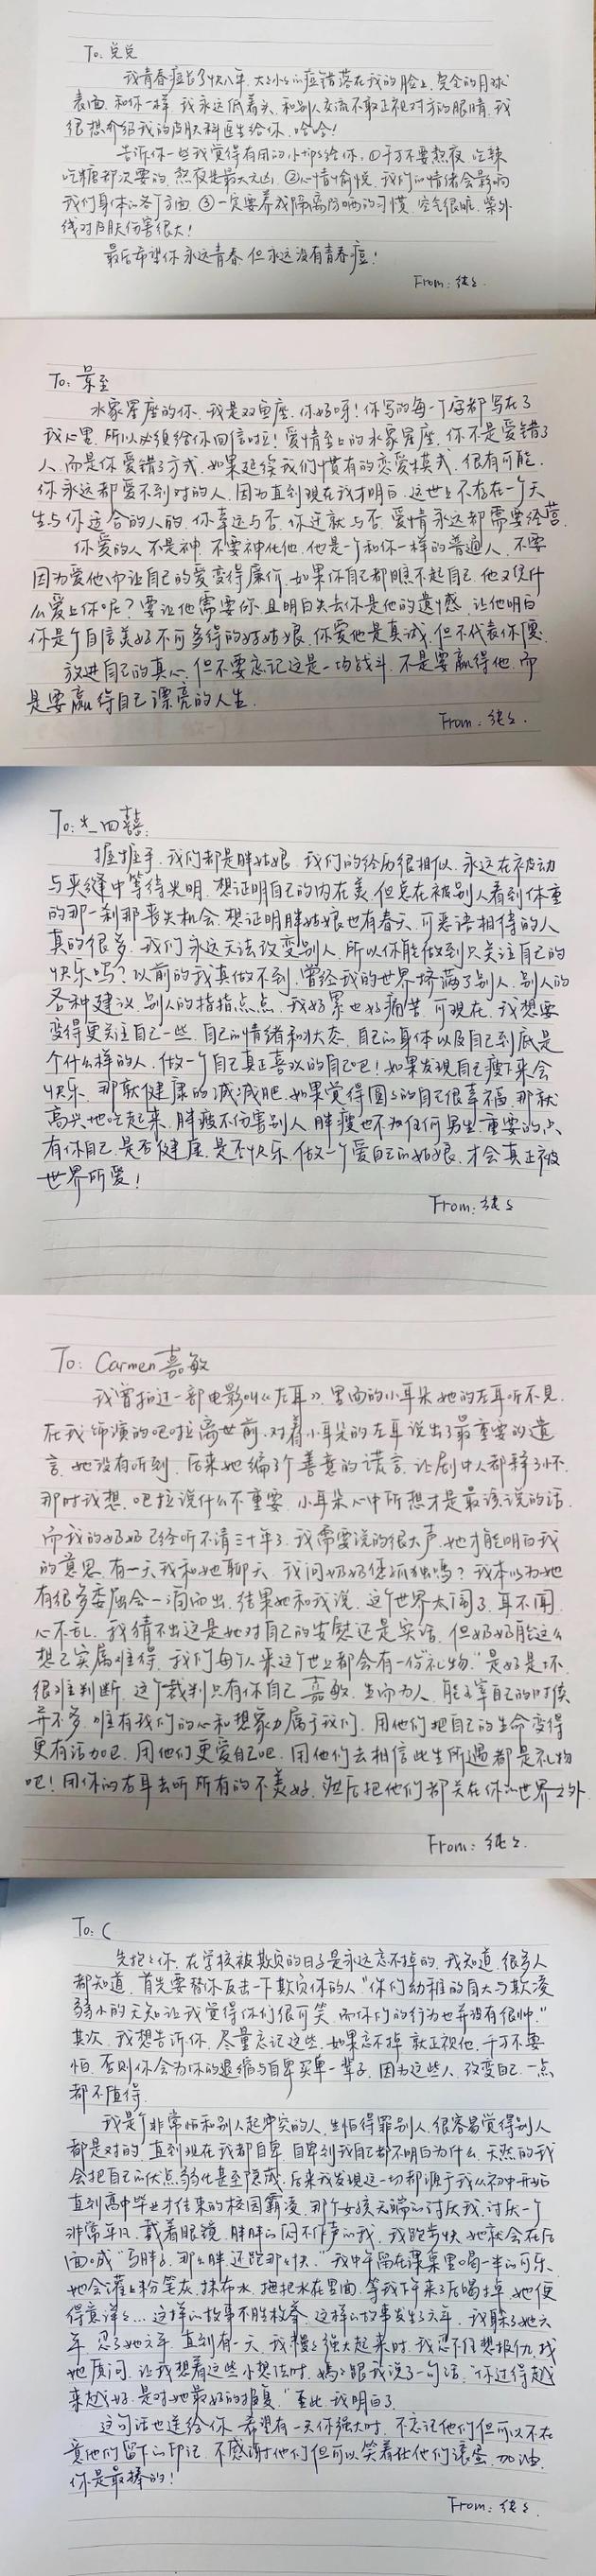 To: 兑兑
我青春痘长了快八年，大大小小的痘错落在我的脸上，完全的月球
表面，和你一样，我永远低着头，和别人交流不敢正视对方的眼睛，我
很想介绍我的皮肤科医生给你，哈哈！
告诉你一些我觉得有用的小tips给你，①千万不要熬夜，吃辣
吃糖都次要的，熬夜是最大元凶，②心情愉悦，我们的情绪会影响
我们身体的各个方面，③一定要养成隔离防晒的习惯，空气很脏，紫外
线对皮肤伤害很大！
最后希望你永远青春，但永远没有青春痘！
From: 纯纯
To: 景至
水象星座的你，我是双鱼座，你好呀！你写的每一个字都写在了
我心里，所以必须给你回信啦！爱情至上的水象星座，你不是爱错了
人，而是你爱错了方式，如果延续我们惯有的恋爱模式，很有可能，
你永远都爱不到对的人，因为直到现在我才明白，这世上不存在一个天
生与你适合的人的，你幸运与否，你迁就与否，爱情永远都需要经营。
你爱的人不是神，不要神化他，他是一个和你一样的普通人，不要
因为爱他而让自己的爱变得廉价，如果你自己都瞧不起自己，他又凭什
么爱上你呢？要让他需要你，且明白失去你是他的遗憾，让他明白
你是个自信美好不可多得的好姑娘，你爱他是真诚，但不代表你傻。
放进自己的真心，但不要忘记这是一场战斗，不是要赢得他，而
是要赢得自己漂亮的人生。
From: 纯纯
To: 大_四囍:
握握手，我们都是胖姑娘，我们的经历很相似，永远在被动
与夹缝中等待光明，想证明自己的内在美，但总在被别人看到体重
的那一刹那丧失机会，想证明胖姑娘也有春天，可恶语相待的人
真的很多，我们永远无法改变别人，所以你能做到只关注自己的
快乐吗？以前的我真做不到，曾经我的世界挤满了别人，别人的
各种建议，别人的指指点点，我好累也好痛苦，可现在，我想要
变得更关注自己一些，自己的情绪和状态，自己的身体以及自己到底是
个什么样的人，做一个自己真正喜欢的自己吧！如果发现自己瘦下来会
快乐，那就健康的减减肥，如果觉得圆圆的自己很幸福，那就
高兴地吃起来，胖瘦不伤害别人，胖瘦也不如任何男生重要的点
有你自己，是否健康，是否快乐，做一个爱自己的姑娘，才会真正被
世界所爱！
From: 纯纯
To: Carmen嘉敏
我曾拍过一部电影叫《左耳》，里面的小耳朵她的左耳听不见，
在我饰演的吧啦离世前，对着小耳朵的左耳说出了最重要的遗
言，她没有听到，后来她编了个善意的谎言，让剧中人都释了怀，
那时我想，吧啦说什么不重要，小耳朵心中所想才是最该说的话，
而我的奶奶已经听不清三十年了，我需要说的很大声，她才能明白我
的意思，有一天我和她聊天，我问奶奶您孤独吗？我本以为她
有很多委屈会一涌而出，结果她和我说，这个世界太闹了，耳不闻，
心不乱，我猜不出这是她对自己的安慰还是实话，但奶奶能这么
想已实属难得，我们每个人来这个世上都会有一份礼物，“是好是坏
很难判断，这个裁判只有你自己，嘉敏，生而为人，能主宰自己的时候
并不多，唯有我们的心和想象力属于我们，用他们把自己的生命变得
更有活力吧，用他们更爱自己吧，用他们去相信此生所遇都是礼物
吧！用你的右耳去听所有的不美好，然后把他们都关在你的世界之外
From: 纯纯.
To: C
先抱抱你，在学校被欺负的日子是永远忘不掉的，我知道，很多人
都知道，首先要替你反击一下欺负你的人“你们幼稚的自大与欺凌
弱小的无知让我觉得你们很可笑，而你们的行为也并没有很帅.”
其次，我想告诉你，尽量忘记这些，如果忘不掉，就正视他，千万不要
怕，否则你会为你的退缩与自卑买单一辈子，因为这些人，改变自己，一点
都不值得，
我是个非常怕和别人起冲突的人，生怕得罪别人，很容易觉得别人
都是对的，直到现在我都自卑，自卑到我自己都不明白为什么，天然的我
会把自己的优点弱化甚至隐藏，后来我发现这一切都源于我从初中开始
直到高中毕业才结束的校园霸凌，那个女孩无端的讨厌我，讨厌一个
非常平凡，戴着眼镜，胖胖的闷不作声的我，我跑步快，她就会在后
面喊“马胖子，那么胖，还跑那么快.”我中午留在课桌里喝一半的可乐，
她会灌上粉笔灰，抹布水，拖把水在里面，等我下午来了后喝掉，她便
得意洋洋...这样的故事不胜枚举，这样的故事发生了六年，我躲了她六
年，忍了她六年，直到有一天，我慢慢强大起来时，我忍不住想报仇，找
她质问，让我想着这些小想法时，妈妈跟我说了一句话，“你过得越
来越好，是对她最好的报复.”至此，我明白了.
这句话也送给你，希望有一天你强大时，不忘记他们但可以不在
意他们留下的印记，不感谢他们但可以笑着让他们滚蛋，加油，
你是最棒的！
From: 纯纯.